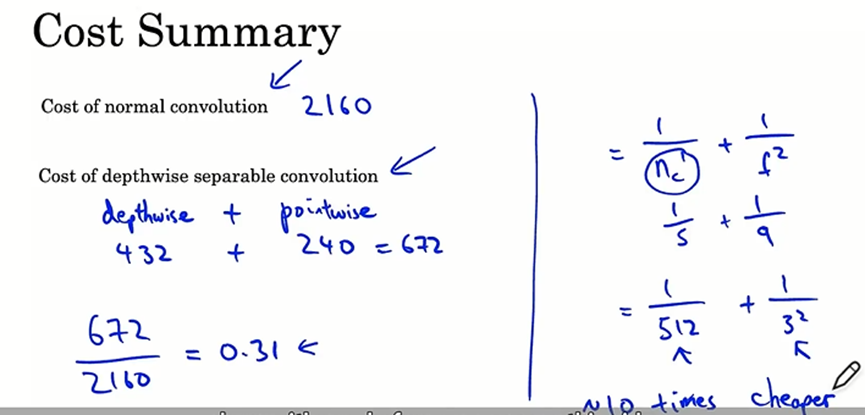 Cost Summary
Cost of normal convolution 2160
Cost of depthwise separable convolution
depthwise + pointwise
432 + 240 = 672
672/2160 = 0.31 ←
= 1/nc' + 1/f²
1/5 + 1/9
= 1/512 + 1/3²
~10 times cheaper